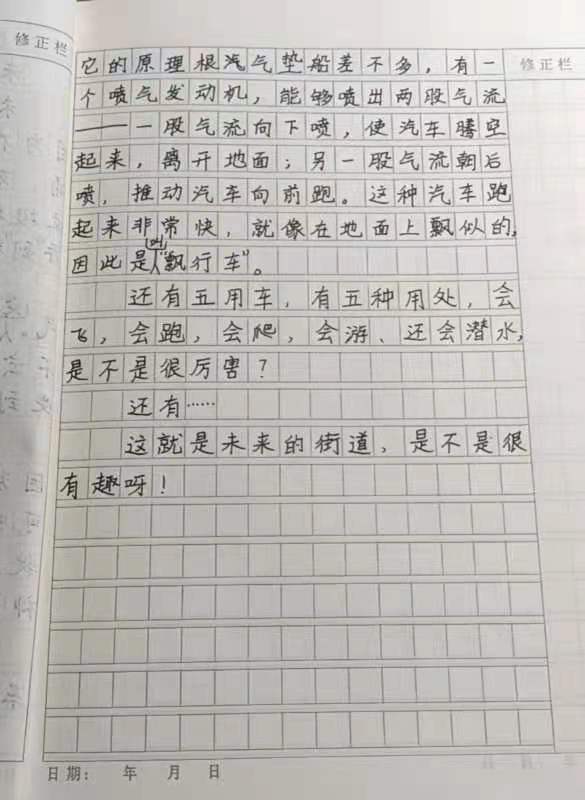 修正栏
修正栏
它的原理根汽气垫船差不多，有一
个喷气发动机，能够喷出两股气流
——一股气流向下喷，使汽车腾空
起来，离开地面；另一股气流朝后
喷，推动汽车向前跑。这种汽车跑
起来非常快，就像在地面上飘似的，
叫
因此是人“飘行车”。
还有五用车，有五种用处，会
飞，会跑，会爬，会游、还会潜水，
是不是很厉害？
还有……
这就是未来的街道，是不是很
有趣呀！
日期： 年 月 日